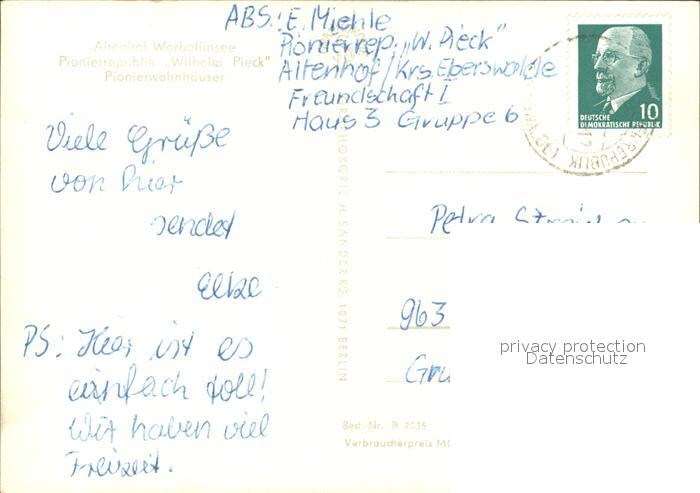 ABS.: E. Miehle
Pionierrep. „W. Pieck"
Altenhof/Krs. Eberswalde
Freundschaft I
Haus 3 Gruppe 6
Altenhof Werbellinsee
Pionierrepublik „Wilhelm Pieck"
Pionierwohnhäuser
Viele Grüße
von hier
sendet
Elke
PS: Hier ist es
einfach toll!
Wir haben viel
Freizeit.
H. SANDER KG, 1071 BERLIN
DEUTSCHE
DEMOKRATISCHE REPUBLIK
10
REPUBLIK
Petra
963
Gru
privacy protection
Datenschutz
Best.-Nr. R 2035
Verbraucherpreis